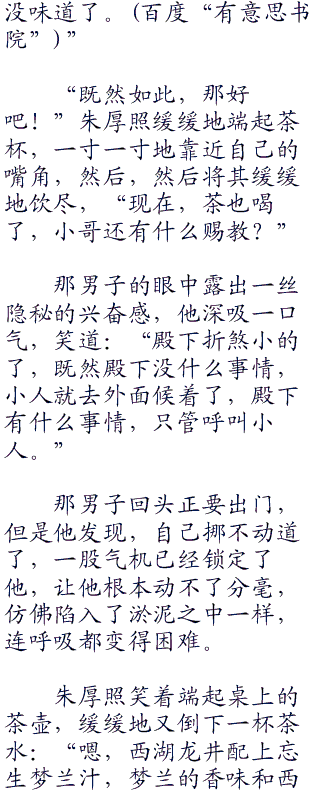 没味道了。(百度“有意思书
院”)”
“既然如此，那好
吧！”朱厚照缓缓地端起茶
杯，一寸一寸地靠近自己的
嘴角，然后，然后将其缓缓
地饮尽，“现在，茶也喝
了，小哥还有什么赐教？”
那男子的眼中露出一丝
隐秘的兴奋感，他深吸一口
气，笑道：“殿下折煞小的
了，既然殿下没什么事情，
小人就去外面候着了，殿下
有什么事情，只管呼叫小
人。”
那男子回头正要出门，
但是他发现，自己挪不动道
了，一股气机已经锁定了
他，让他根本动不了分毫，
仿佛陷入了淤泥之中一样，
连呼吸都变得困难。
朱厚照笑着端起桌上的
茶壶，缓缓地又倒下一杯茶
水：“嗯，西湖龙井配上忘
生梦兰汁，梦兰的香味和西